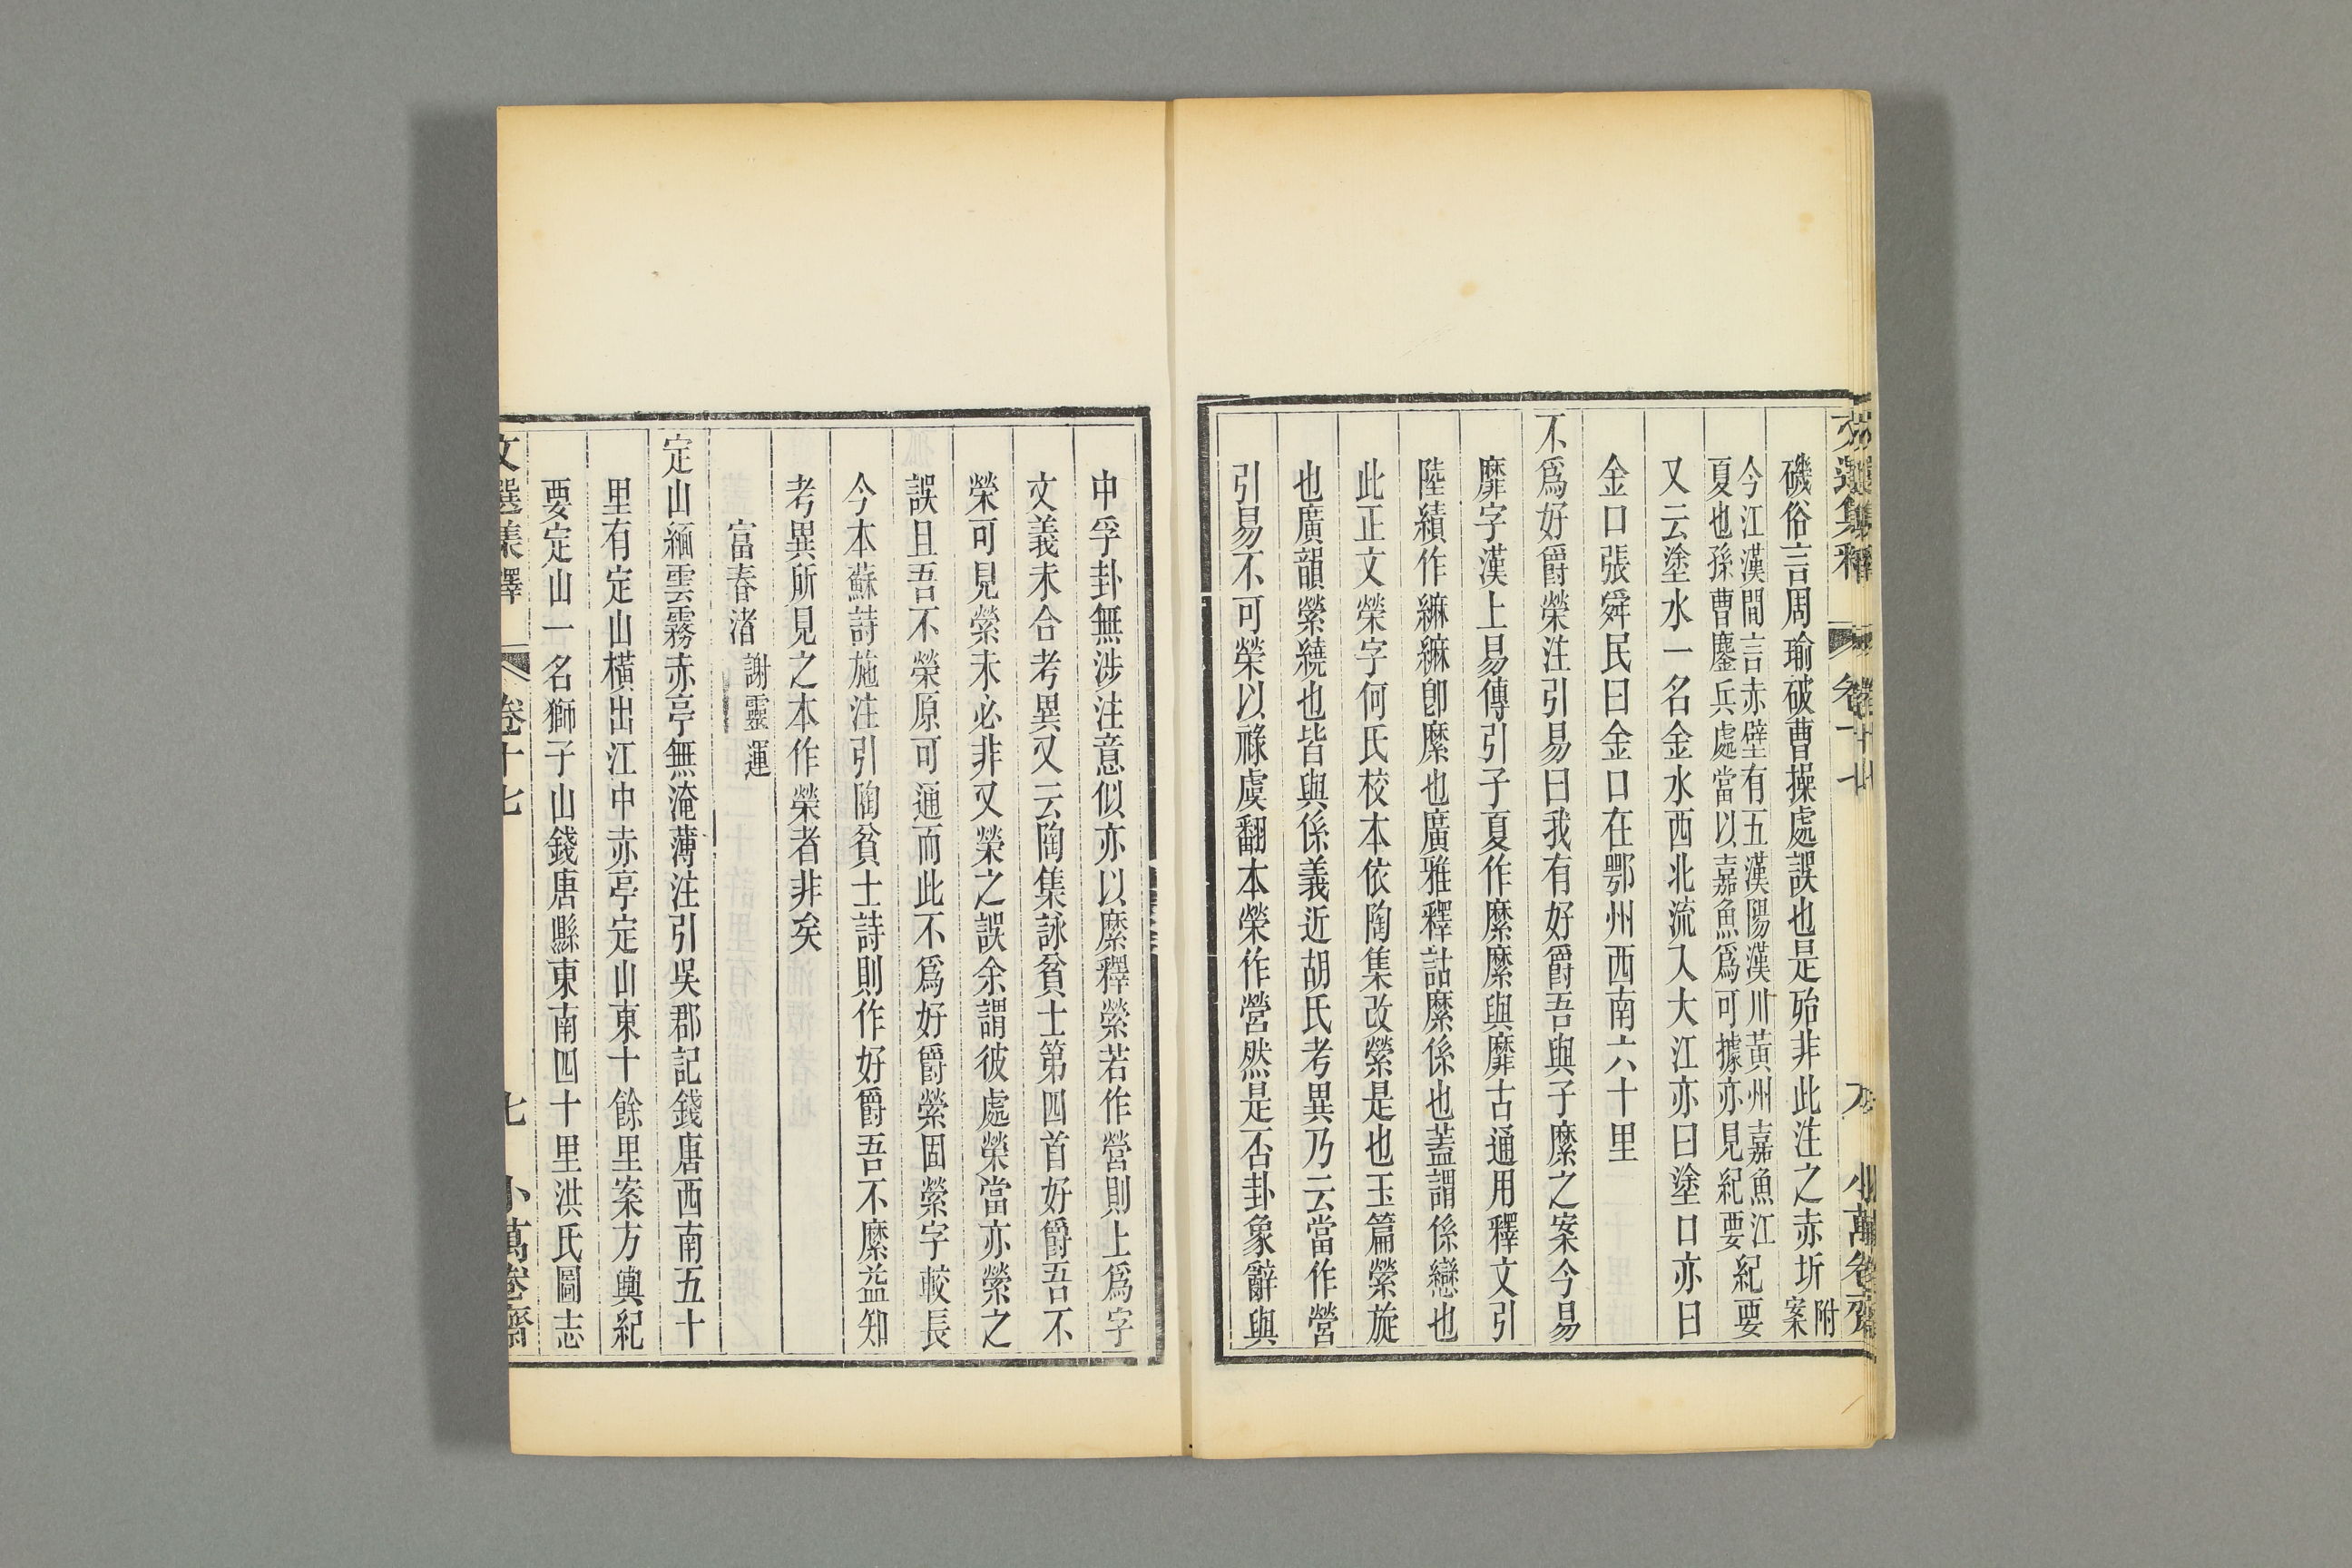 磯俗言周瑜破曹操處誤也是殆非此注之赤圻附案
今江漢間言赤壁有五漢陽漢川黃州嘉魚江
夏也孫曹鏖兵處當以嘉魚爲可據亦見紀要
紀要
又云塗水一名金水西北流入大江亦曰塗口亦曰
金口張舜民曰金口在鄂州西南六十里
不爲好爵榮注引易曰我有好爵吾與子縻之案今易
靡字漢上易傳引子夏作縻縻與靡古通用釋文引
陸績作䌕䌕卽縻也廣雅釋詁縻係也蓋謂係戀也
此正文榮字何氏校本依陶集改縈是也玉篇縈旋
也廣韻縈繞也皆與係義近胡氏考異乃云當作營
引易不可榮以祿虞翻本榮作營然是否卦象辭與
中孚卦無涉注意似亦以縻釋縈若作營則上爲字
文義未合考異又云陶集詠貧士第四首好爵吾不
榮可見縈未必非又榮之誤余謂彼處榮當亦縈之
誤且吾不榮原可通而此不爲好爵縈固縈字較長
今本蘇詩施注引陶貧士詩則作好爵吾不縻益知
考異所見之本作榮者非矣
富春渚 謝靈運
定山緬雲霧赤亭無淹薄注引吳郡記錢唐西南五十
里有定山橫出江中赤亭定山東十餘里案方輿紀
要定山一名獅子山錢唐縣東南四十里洪氏圖志
文選集釋 卷十七 七 小萬卷齋